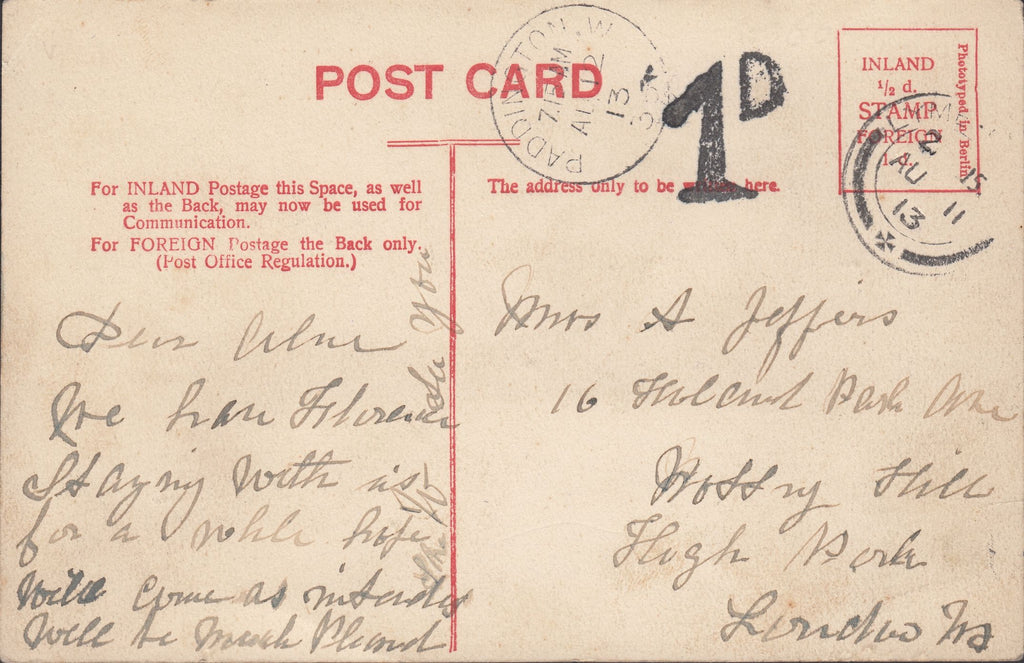 POST CARD
PADDINGTON. W.
7.15 AM
AU 12
13
1D
INLAND
1/2 d.
STAMP
FOREIGN
1 d.
Phototyped in Berlin
2 15
AU 11
13
For INLAND Postage this Space, as well
as the Back, may now be used for
Communication.
For FOREIGN Postage the Back only.
(Post Office Regulation.)
The address only to be written here.
Dear
We have Florence
Staying with us
for a while hope
Will Come as intended
Will be Much Pleased
to see you
Mrs A Jeffers
16 Holland Park Ave
Notting Hill
High Park
London W